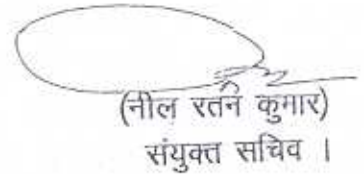 (नील रतन कुमार)
संयुक्त सचिव ।